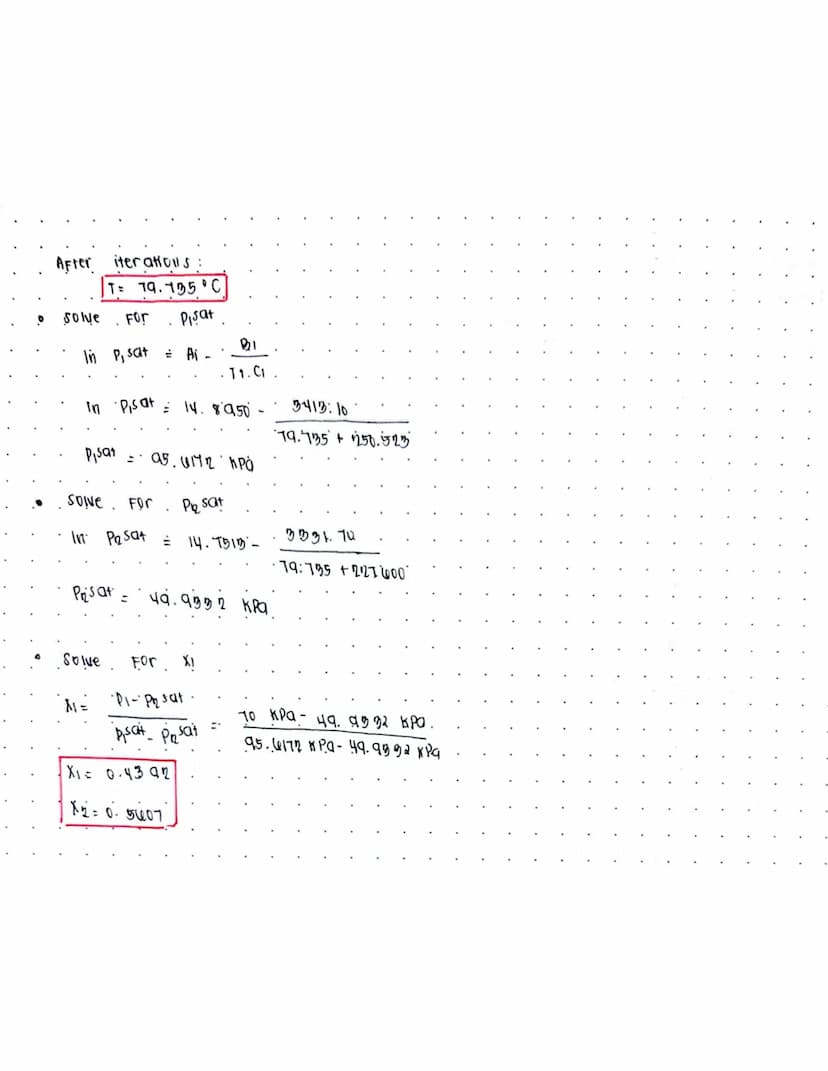 After iterations:
T= 79.735°C
• Solve For P1sat
ln P1sat = A1 - B1
T1.C1
ln P1sat = 14.8950 - 3413.10
79.735 + 250.523
P1sat = 95.6172 kPa
• Solve For P2sat
ln P2sat = 14.7513 - 3331.70
79.735 + 227.600
P2sat = 49.9332 kPa
• Solve For X1
X1 = P1 - P2sat
P1sat - P2sat = 70 kPa - 49.9332 kPa
95.6172 kPa - 49.9332 kPa
X1 = 0.4392
X2 = 0.5607